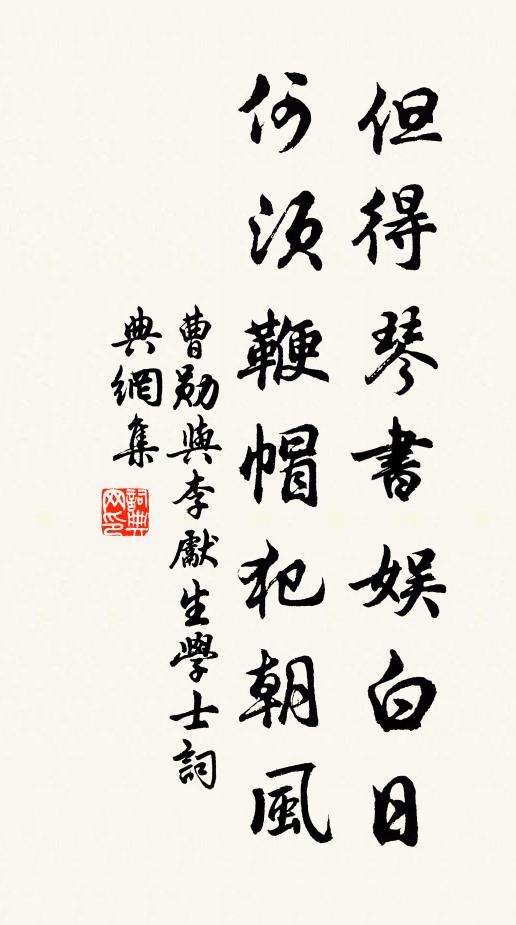 但得琴書娛白日
何須鞭帽犯朝風
曹勛與李獻生學士詞
典網集
詞典网印